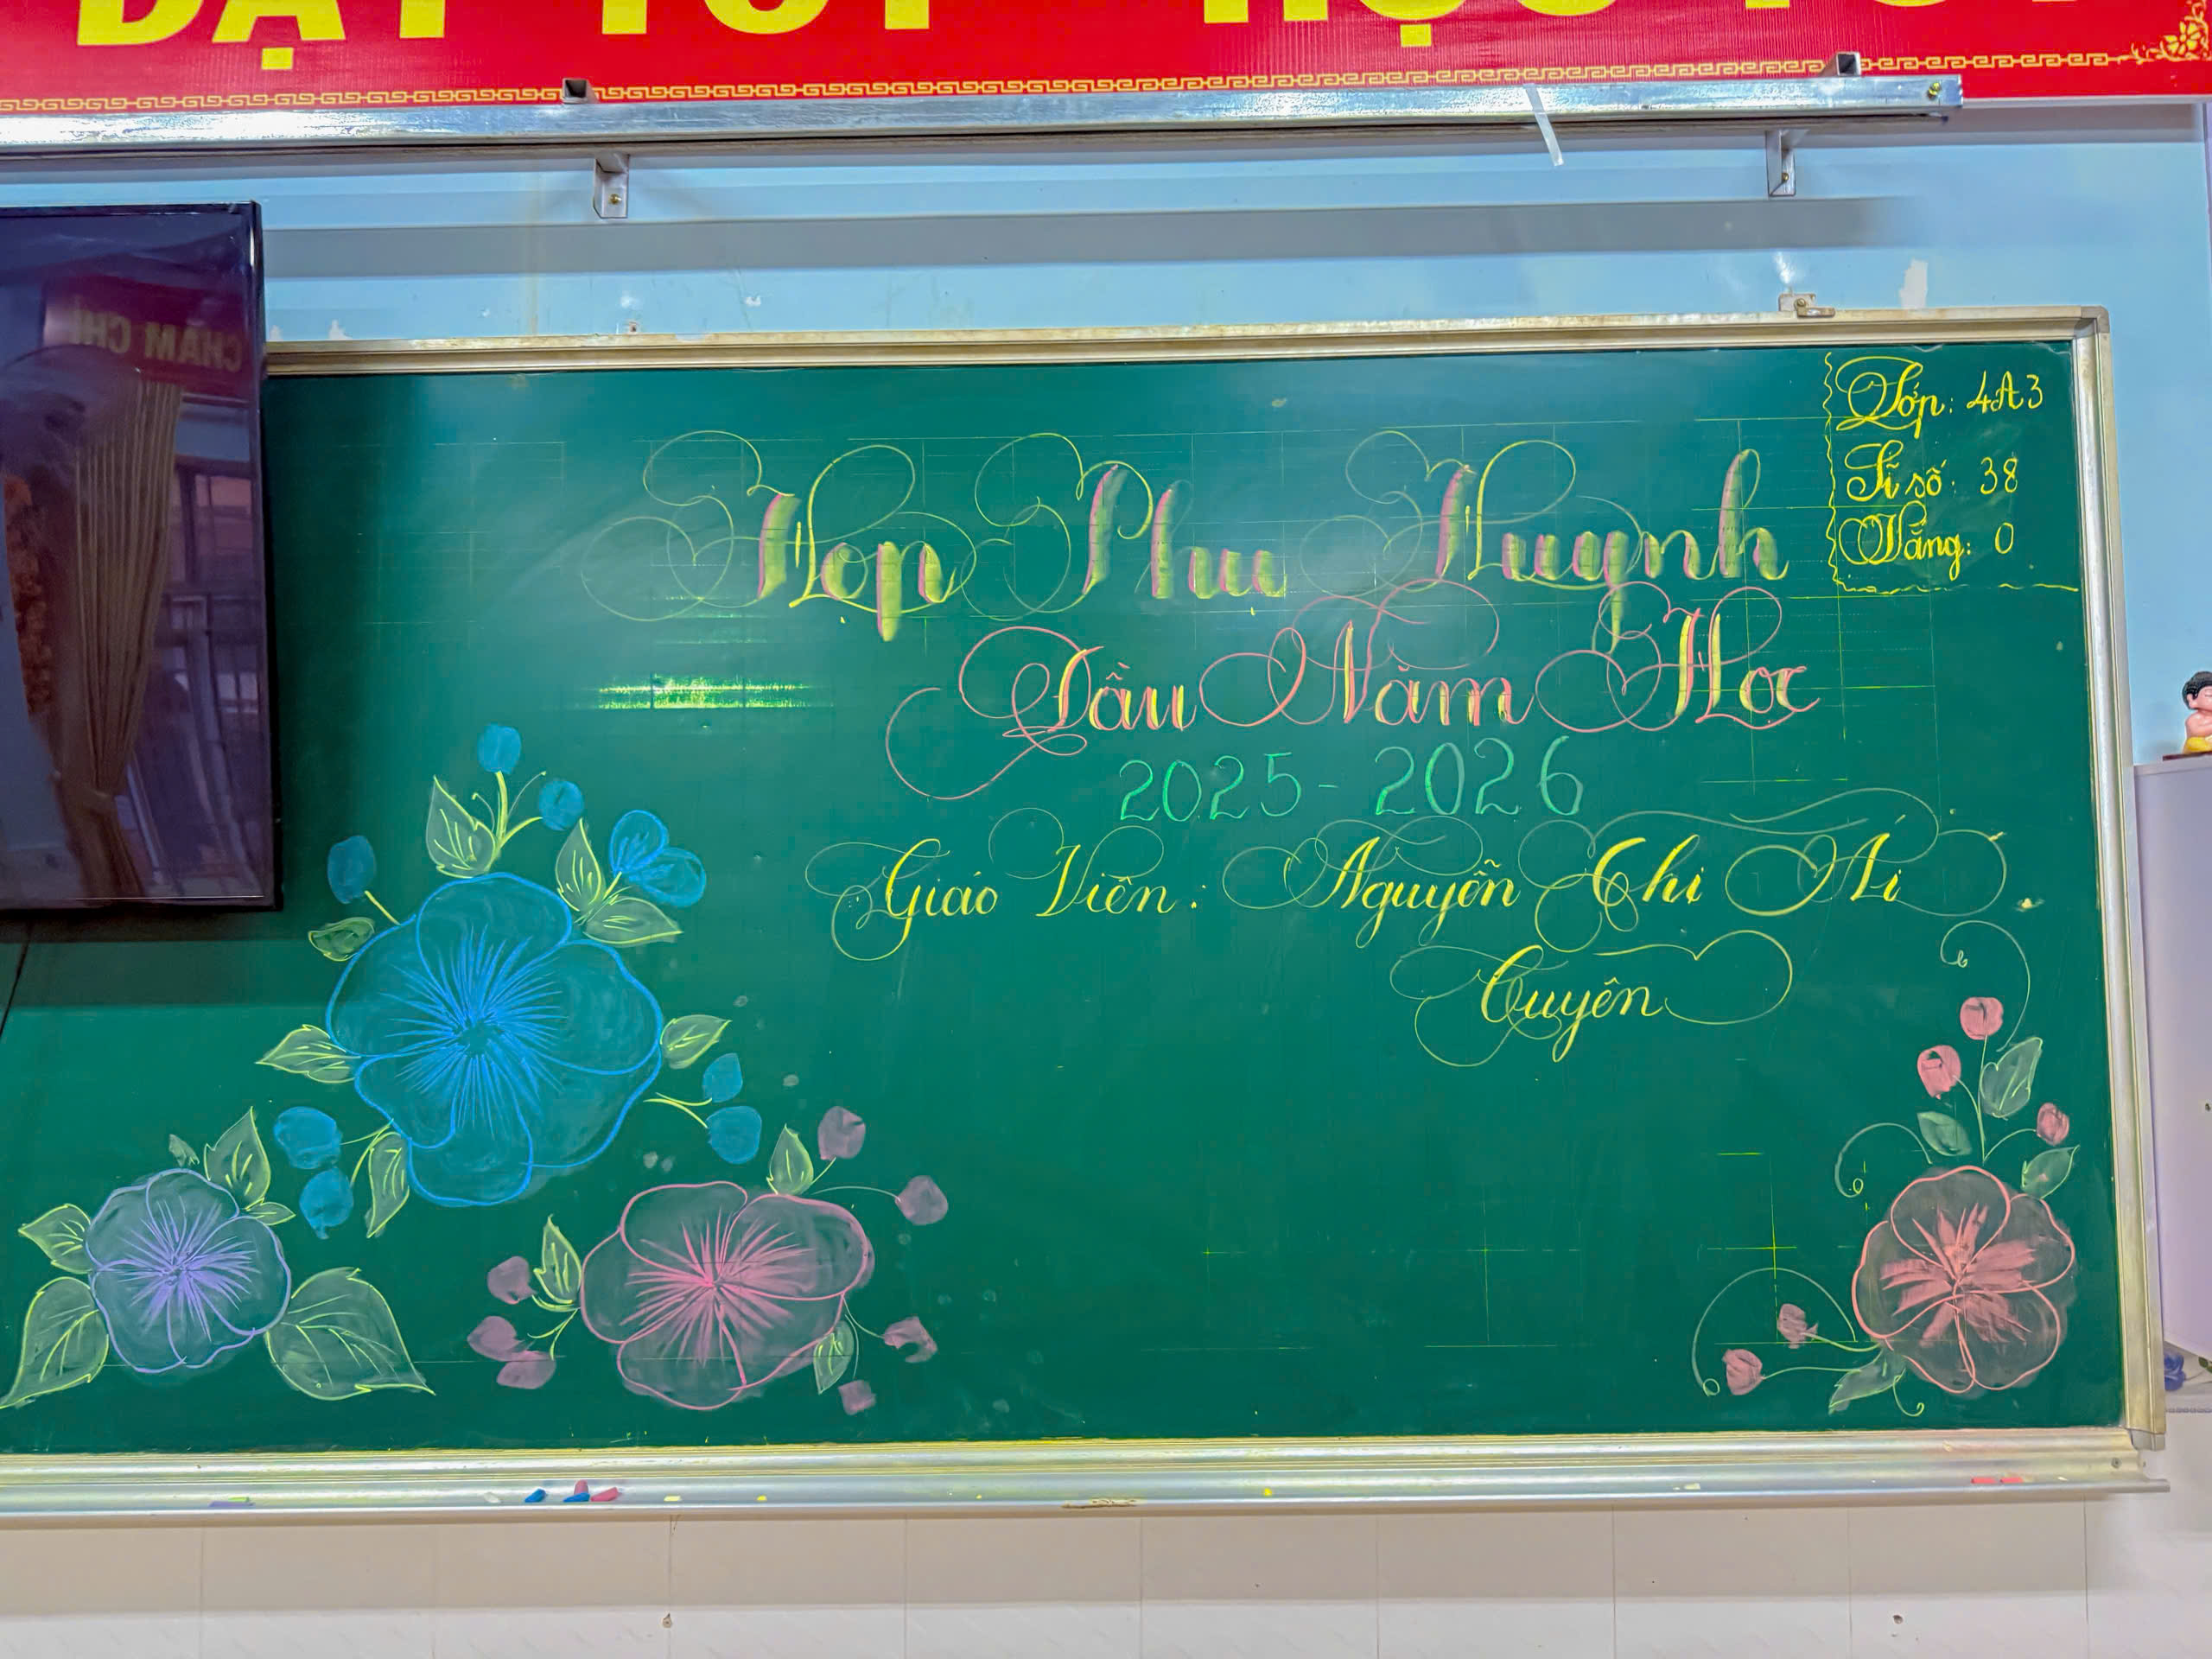 DẠY TỐT - HỌC TỐT
CHĂM CHỈ
Lớp: 4A3
Sĩ số: 38
Vắng: 0
Họp Phụ Huynh
Đầu Năm Học
2025-2026
Giáo Viên: Nguyễn Thị Ái
Tuyên